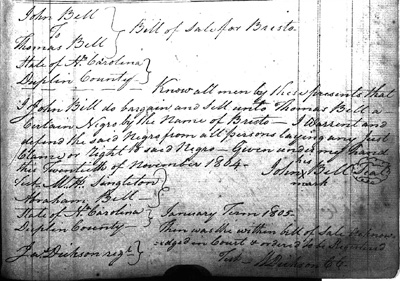 John Bell
To } Bill of Sale for Bristo
Thomas Bell
State of No Carolina
Duplin County
Know all men by these presents that
I John Bell do bargain and Sell unto Thomas Bell a
Certain Negro by the Name of Bristo - I Warrent and
defend the said Negro from all persons laying any Just
Claim or right to said Negro - Given under my hand
this Twentieth of November 1804
his
John x Bell Seal
mark
Test M. H. Singleton
Abraham Bell
State of No Carolina } January Term 1805
Duplin County Then was the within bill of Sale acknow
ledged in Court & ordered to be Registered
Jas Dickson regr Test W Dickson CC